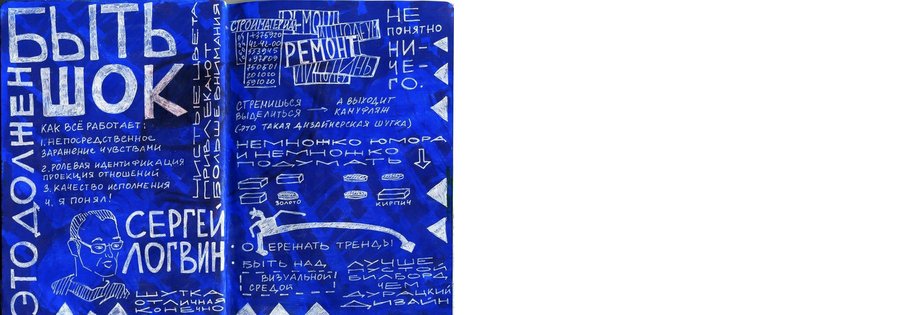 ЭТО ДОЛЖЕН
БЫТЬ
ШОК
КАК ВСЁ РАБОТАЕТ:
1. НЕПОСРЕДСТВЕННОЕ
ЗАРАЖЕНИЕ ЧУВСТВАМИ
2. РОЛЕВАЯ ИДЕНТИФИКАЦИЯ
ПРОЕКЦИЯ ОТНОШЕНИЙ
3. КАЧЕСТВО ИСПОЛНЕНИЯ
4. Я ПОНЯЛ!
ЧИСТЫЕ ЦВЕТА
ПРИВЛЕКАЮТ
БОЛЬШЕ ВНИМАНИЯ
СЕРГЕЙ
ЛОГВИН
ШУТКА
ОТЛИЧНАЯ
КОНЕЧНО
СТРОЙМАТЕРИАЛ
РЕМОНТ
НЕ
ПОНЯТНО
НИ-
ЧЕ-
ГО.
СТРЕМИШЬСЯ
ВЫДЕЛИТЬСЯ
А ВЫХОДИТ
КАМУФЛЯЖ
(ЭТО ТАКАЯ ДИЗАЙНЕРСКАЯ ШУТКА)
НЕМНОЖКО ЮМОРА
И НЕМНОЖКО
ПОДУМАТЬ
ЗОЛОТО
КИРПИЧ
ОПЕРЕЖАТЬ ТРЕНДЫ
БЫТЬ НАД
ВИЗУАЛЬНОЙ
СРЕДОЙ
ЛУЧШЕ
ПУСТОЙ
БИЛБОРД,
ЧЕМ
ДУРАЦКИЙ
ДИЗАЙН